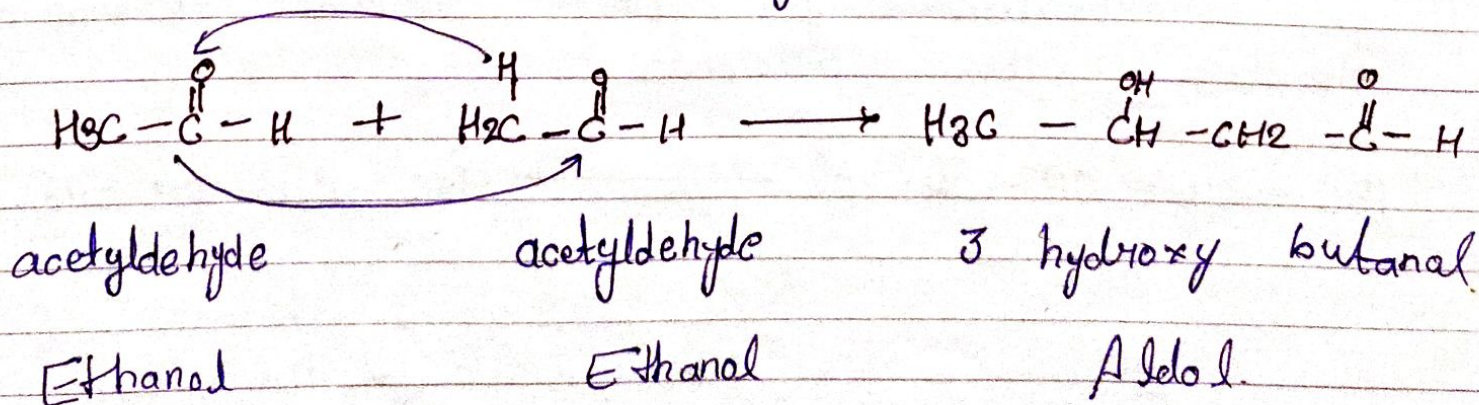 O H O OH O
H3C – C – H + H2C – C – H → H3C – CH – CH2 – C – H
acetyldehyde acetyldehyde 3 hydroxy butanal
Ethanal Ethanal Aldol.